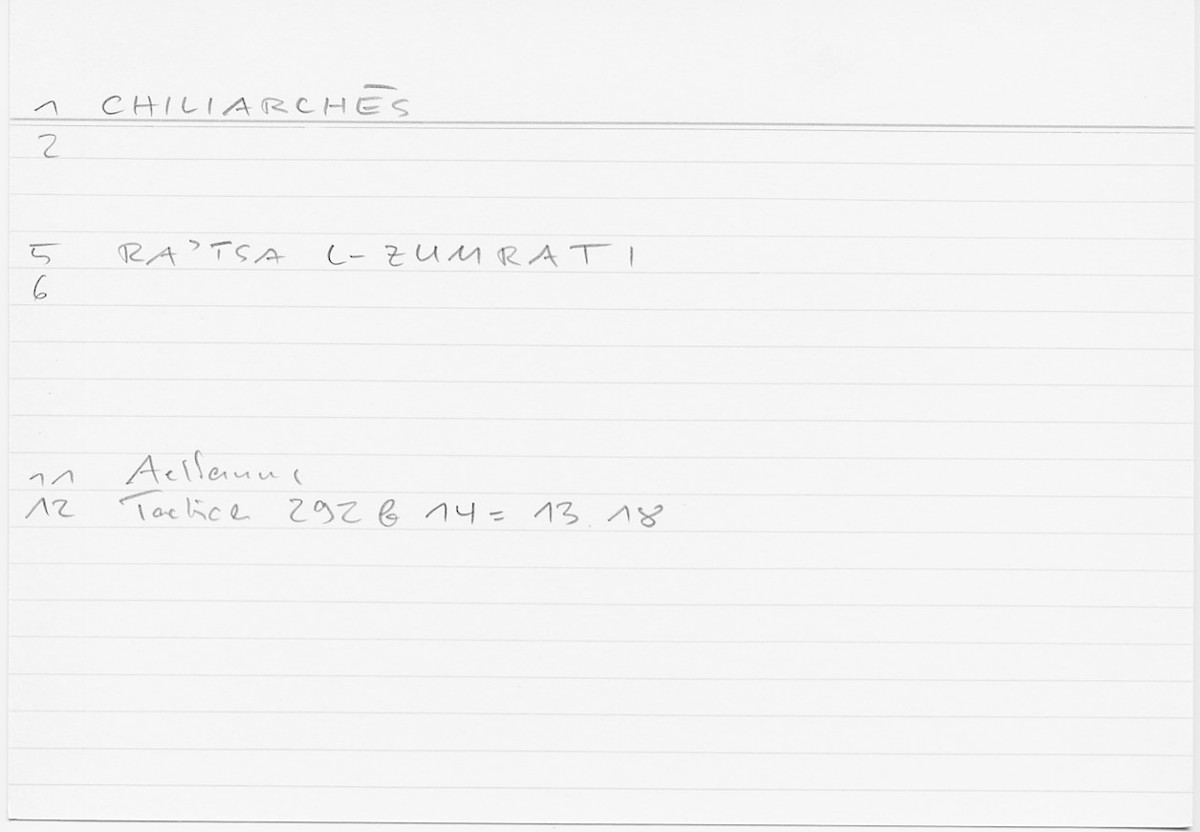 1 CHILIARCHĒS
2
5 RA'TSA L-ZUMRATI
6
11 Aelianus
12 Tactica 292 b 14 = 13.18